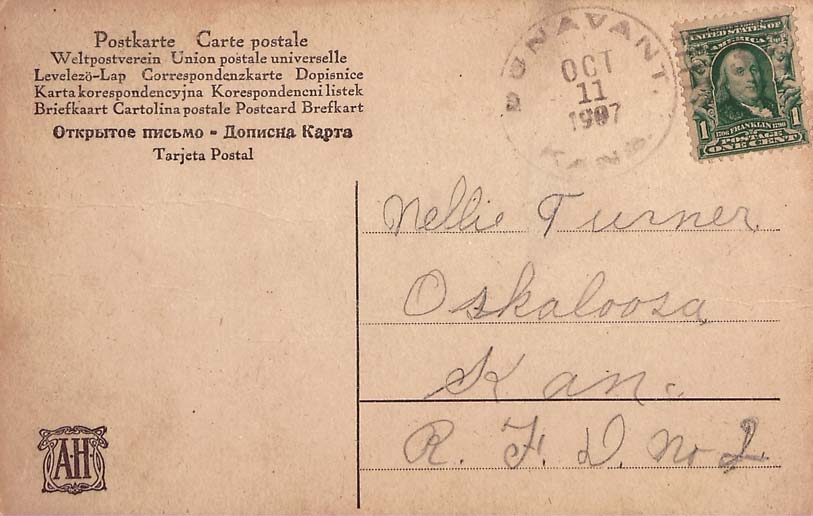 Postkarte Carte postale
Weltpostverein Union postale universelle
Levelezö-Lap Correspondenzkarte Dopisnice
Karta korespondencyjna Korespondencni listek
Briefkaart Cartolina postale Postcard Brefkart
Открытое письмо - Дописна Карта
Tarjeta Postal
DUNAVANT.
OCT
11
1907
KANS.
UNITED STATES OF
AMERICA
1 1706 FRANKLIN 1790 1
POSTAGE
ONE CENT
Nellie Turner
Oskaloosa
Kan.
R. F. D. No 2
AH